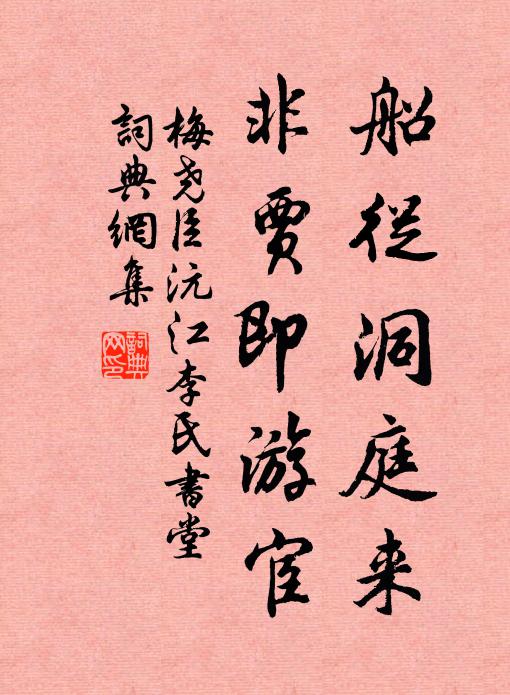 船從洞庭来
非賈即游宦
梅尧臣沅江李氏書堂
詞典網集
詞典网印